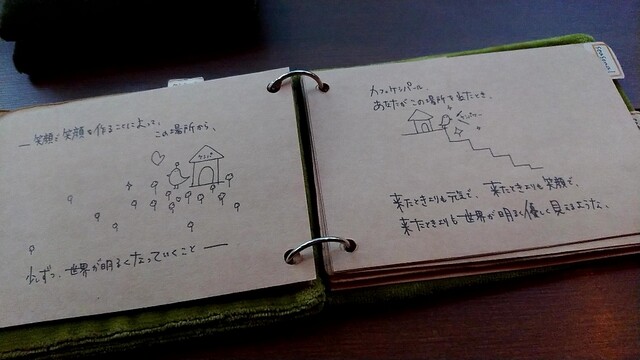 ―笑顔で笑顔を作ることによって、
この場所から、
ケンパ
少しずつ、世界が明るくなっていくこと―
seasonal
カフェケンパール。
あなたがこの場所を出たとき、
来たときよりも元気で、来たときよりも笑顔で、
来たときよりも世界が明るく優しく見えるような、